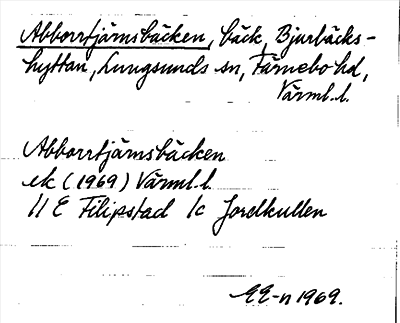 Abborrtjärnsbäcken, bäck, Bjurbäcks-
hyttan, Lungsunds sn, Färnebo hd,
Värml. l.
Abborrtjärnsbäcken
ek (1969) Värml. l.
11 E Filipstad 1c Jordkullen
EE-n 1969.